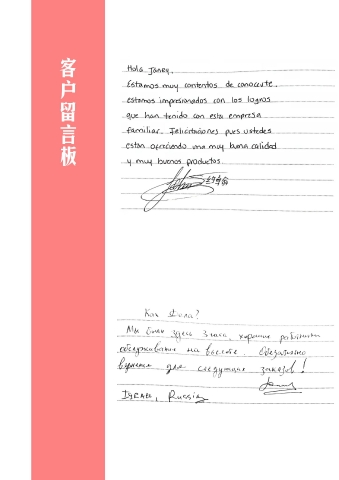 客户留言板
Hola Janry,
Estamos muy contentos de conocerte.
estamos impresionados con los logros
que han tenido con esta empresa
familiar. Felicitaciones pues ustedes
están ofreciendo una muy buena calidad
y muy buenos productos.
Как дела?
Мы были здесь 3 часа, хорошие работники
обслуживание на высоте. Обязательно
вернемся для следующих заказов!
ISRAEL, Russia